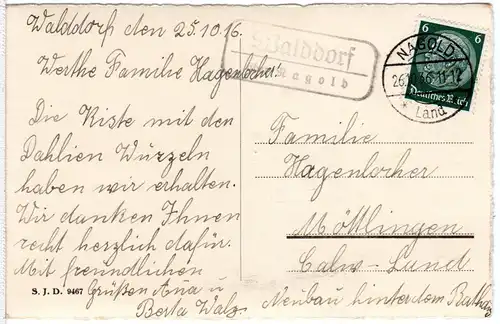 Walddorf den 25.10.16.
Werthe Familie Hagenlocher!
Die Kiste mit den
Dahlien Würzeln
haben wir erhalten.
Wir danken Ihnen
recht herzlich dafür.
Mit freundlichen
Grüßen Ana u
Berta Walz
S. J. D. 9467
Walddorf
Nagold
6 6
Deutsches Reich
NAGOLD
11-12
* Land
Familie
Hagenlocher
Möttlingen
Calw-Land
Neubau hinter dem Rathaus